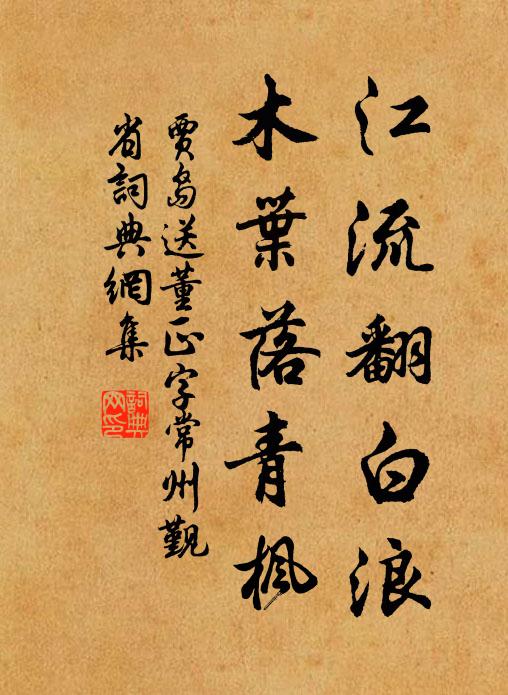 江流翻白浪
木葉落青楓
賈島送董正字常州覲
省詞典網集
詞典网印